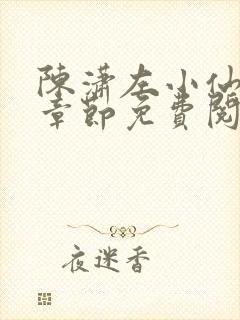 陳瀟左小仙
章節免費閱
夜迷香